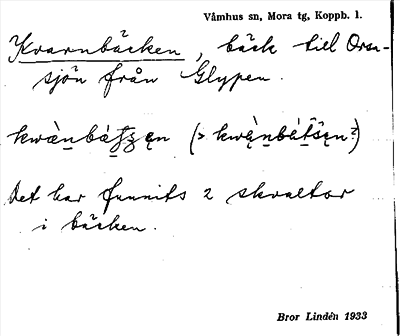 Våmhus sn, Mora tg, Koppb. l.
Kvarnbäcken, bäck till Orsa-
sjön från Glypen.
kwàn̲bátʃʒęn (> kwàn̲bátšęn?)
Det har funnits 2 skvaltor
i bäcken.
Bror Lindén 1933